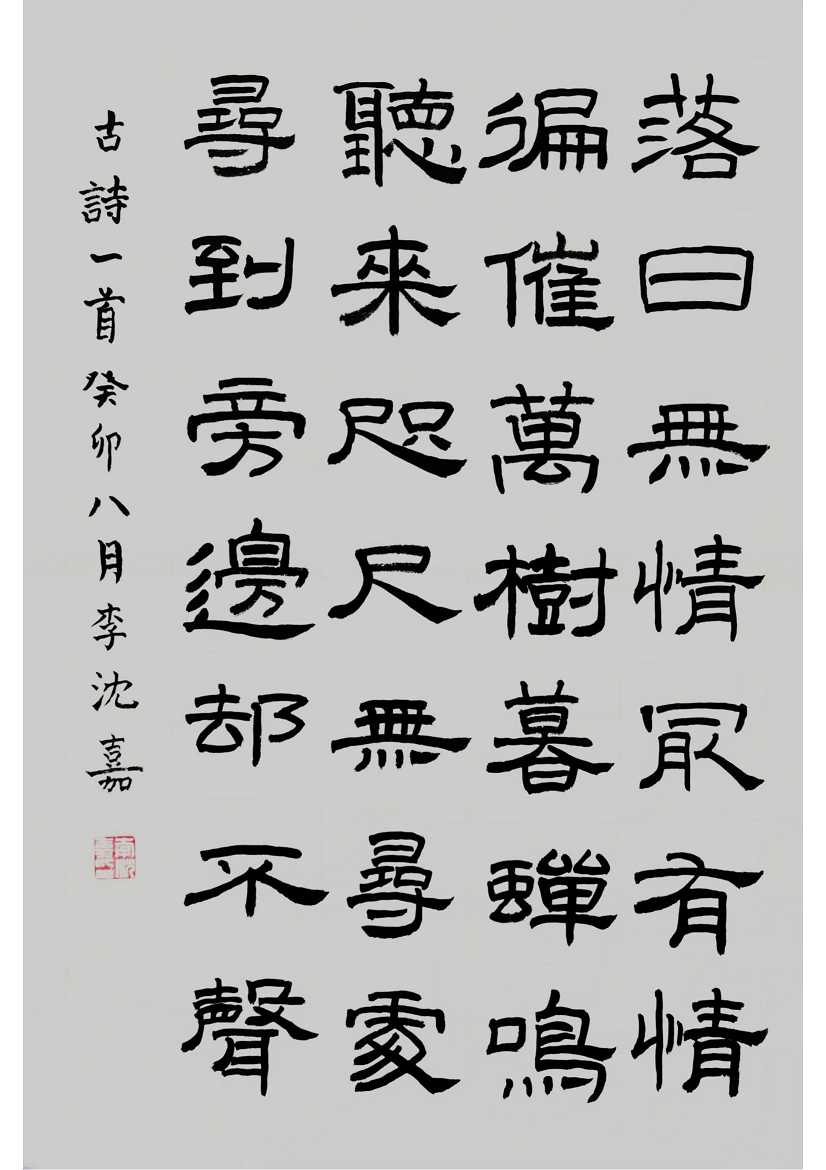 落日無情冣有情
徧催萬樹暮蟬鳴
聽来咫尺無尋處
尋到旁邊却不聲
古詩一首癸卯八月李沈嘉